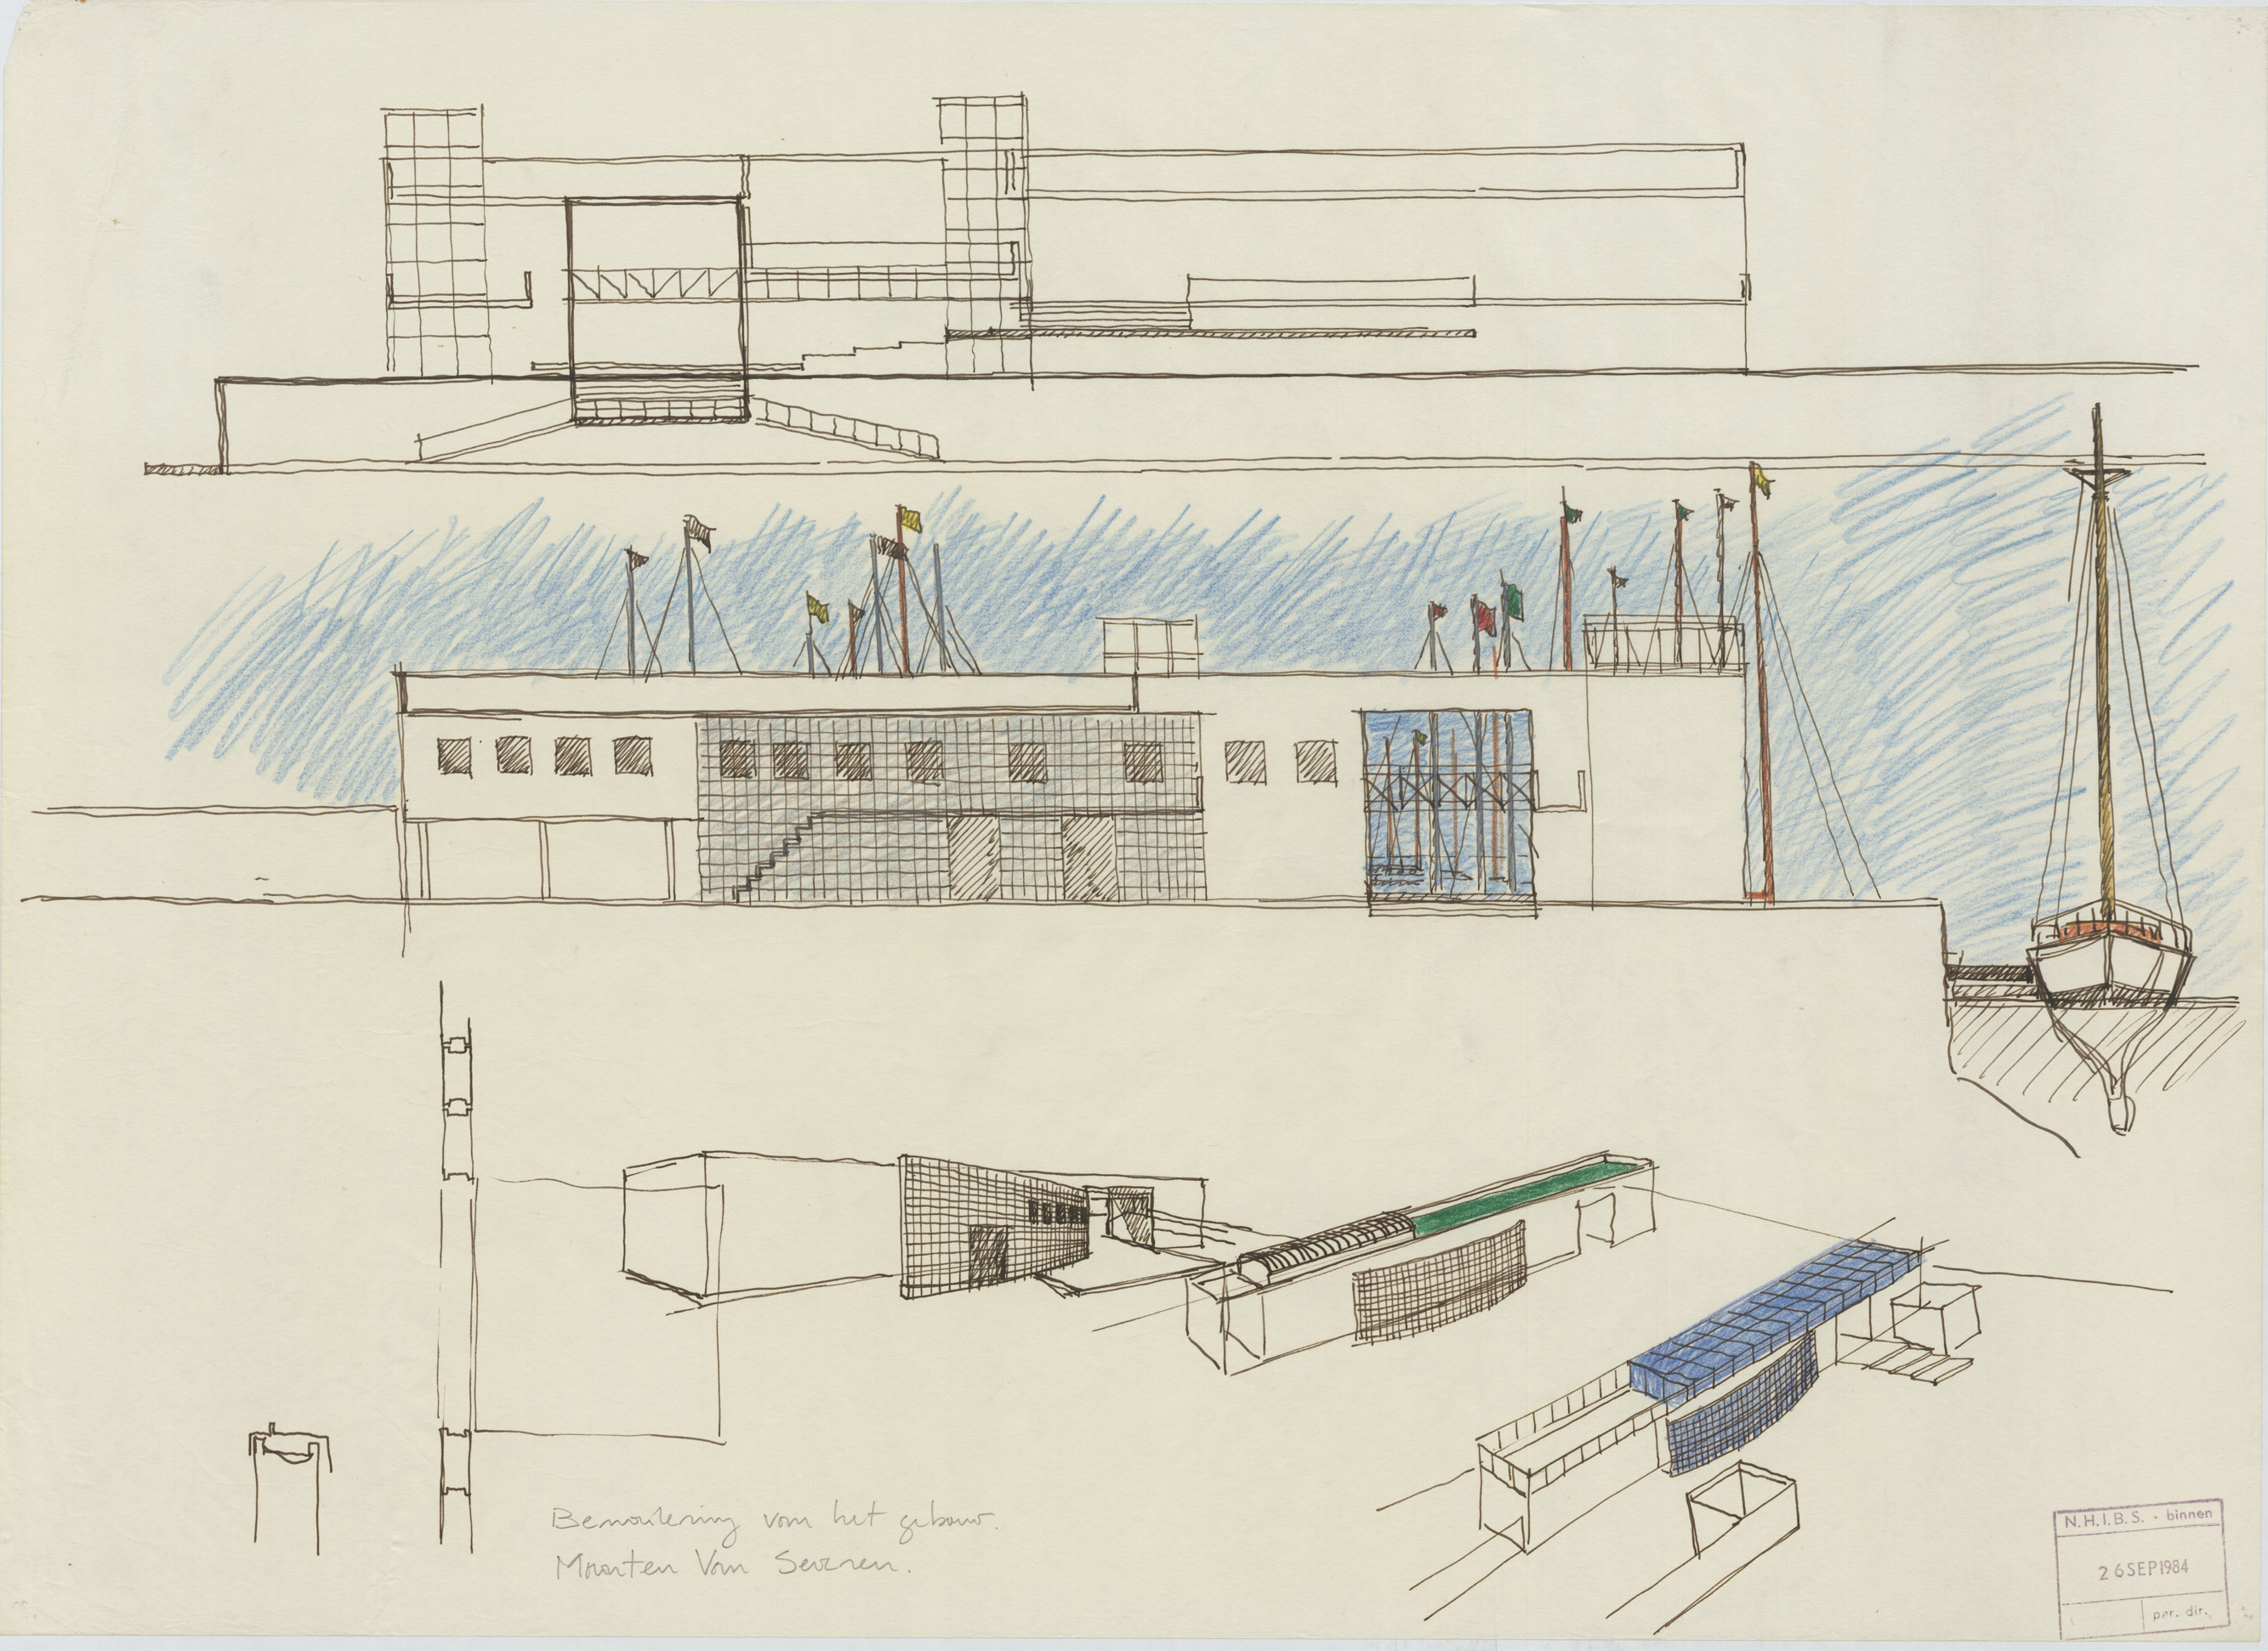 Benadering van het gebouw.
Maarten Van Severen.
N.H.I.B.S. - binnen
26 SEP 1984
par. dir.